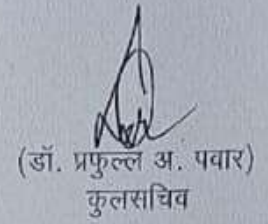 (डॉ. प्रफुल्ल अ. पवार)
कुलसचिव